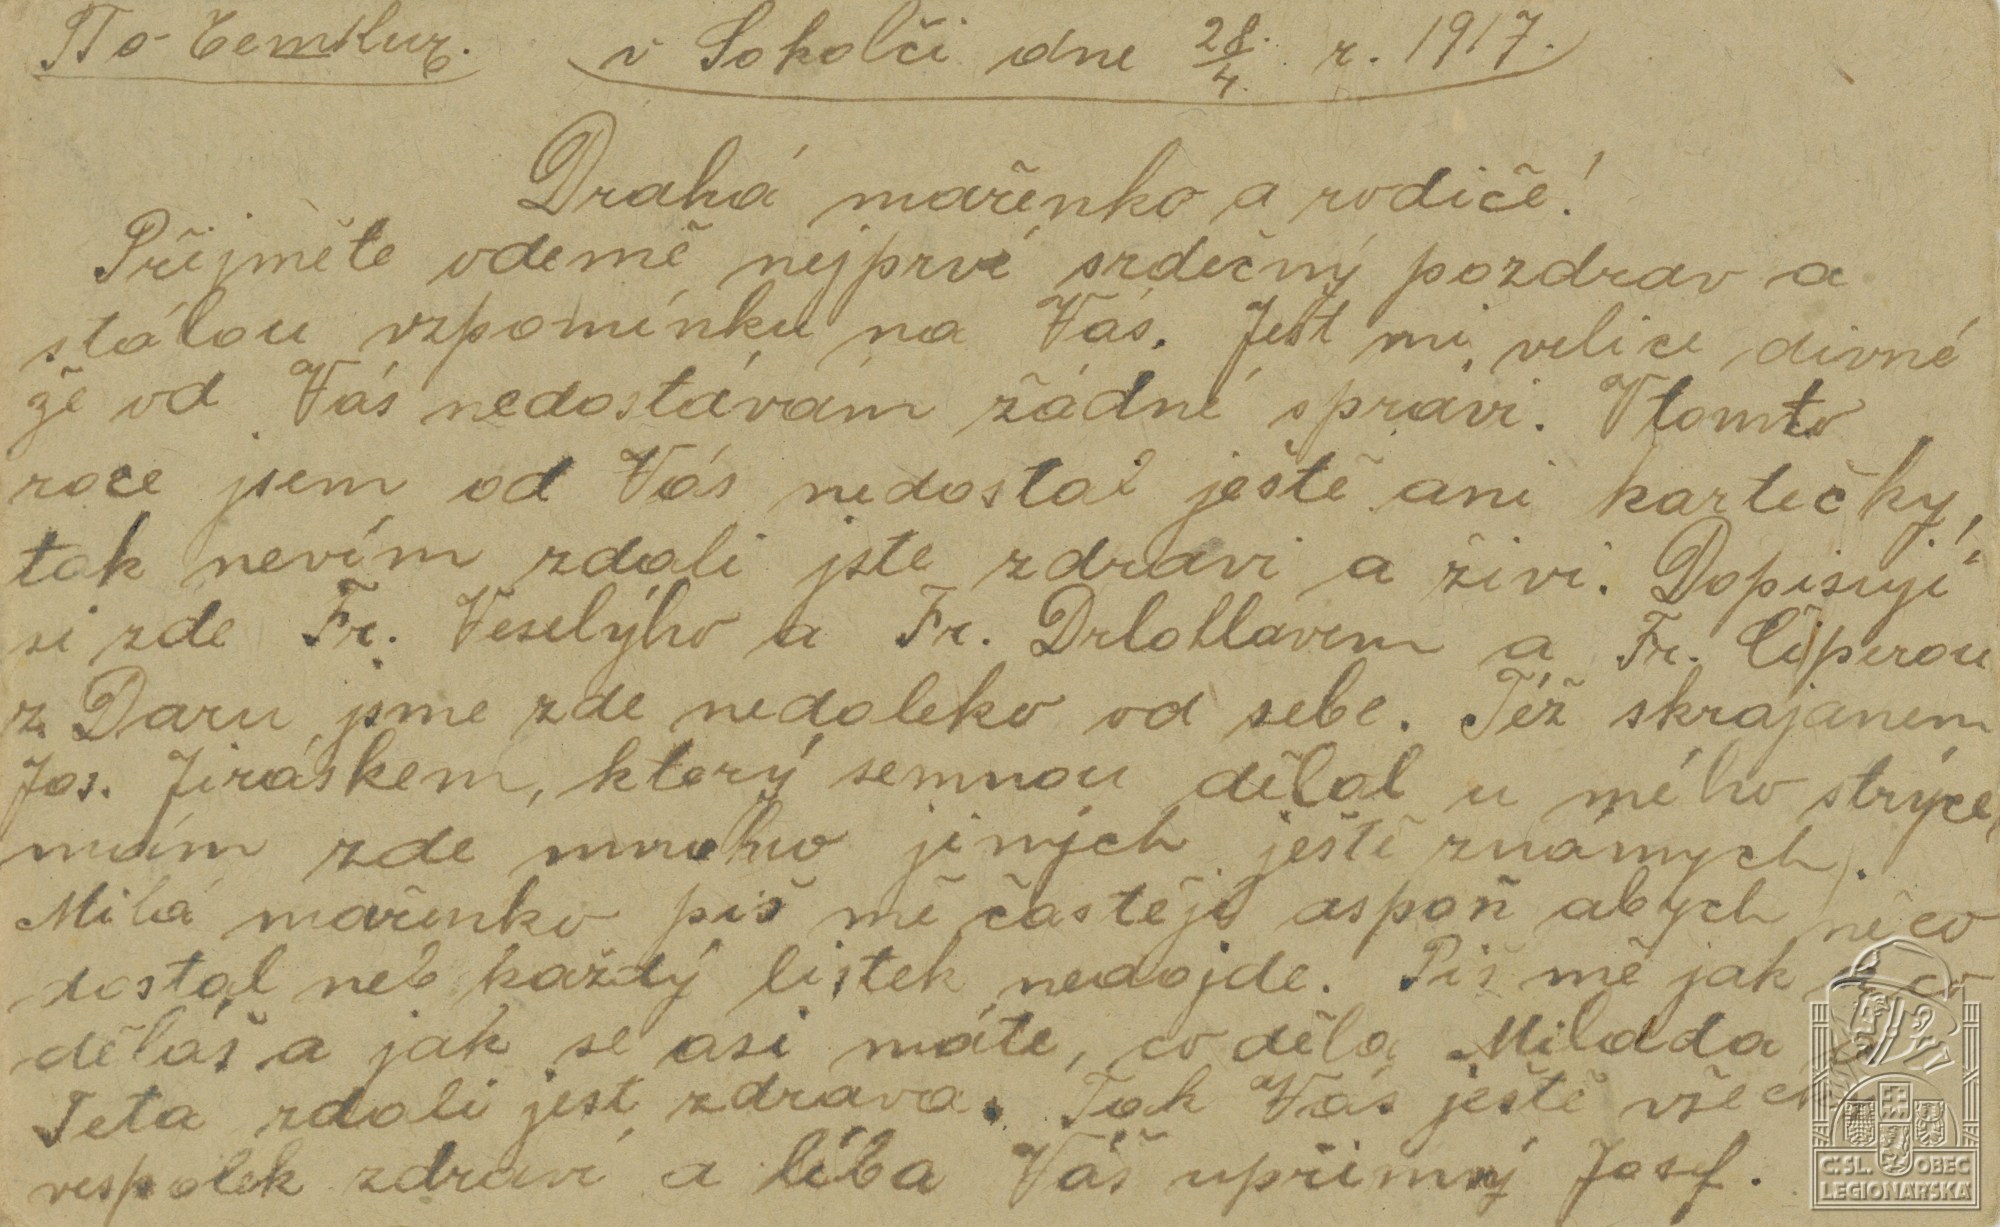 По-Чешкиц. v Sokolči dne 28/4. r. 1917.
Drahá mařenko a rodiče!
Přijměte odemě nejprvé srdečný pozdrav a
stálou vzpomínku na Vás. Jest mi velice divné
že od Vás nedostávám žádné správi. Vtomto
roce jsem od Vás nedostal ještě ani kartičky,
tak nevím zdali jste zdravi a živi. Dopisuji
si zde Fr. Veselýho a Fr. Drlohlavem a Fr. Čiperou
z Daru, jsme zde nedaleko od sebe. Též skrajanem
Jos. Jiráskem, který semnou dělal u mého strýce,
mám zde mnoho jiných ještě známych.
Milá mařenko piš mě častěji aspoň abych něco
dostal neb každý lístek nedojde. Piš mě jak a co
děláš a jak se asi máte, co děla Milada a
Teta zdali jest zdráva. Tak Vás ještě všech
vespolek zdraví a líbá Váš upřimný Josef.
ČSL. OBEC
LEGIONÁŘSKÁ